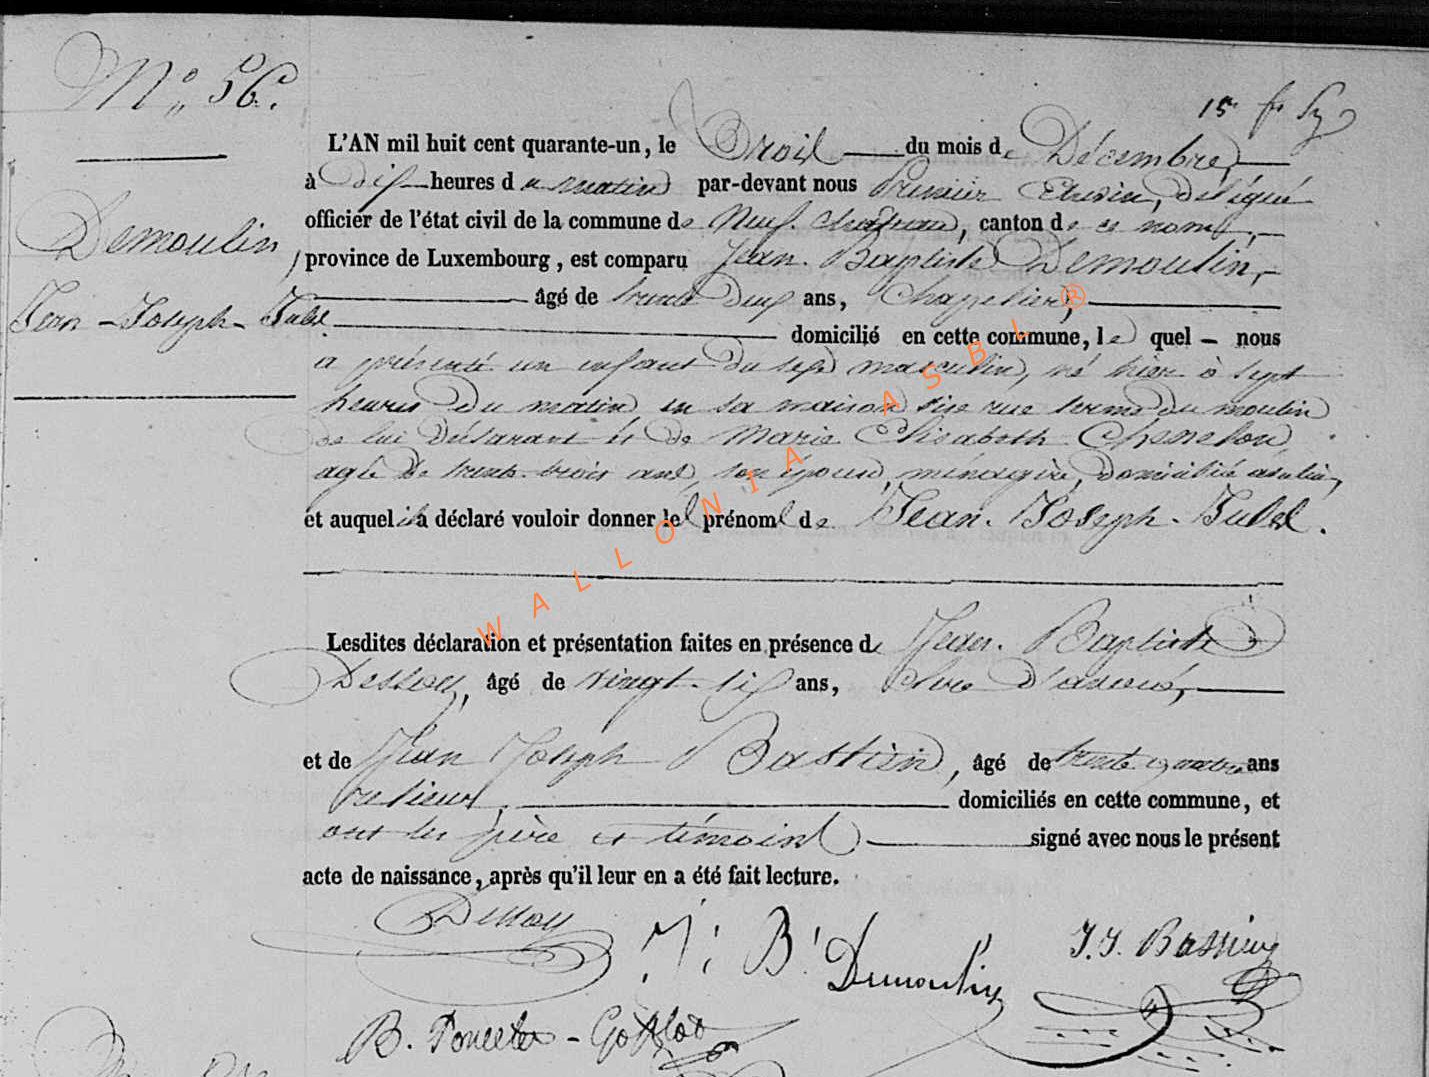 N° 56.
15
L'AN mil huit cent quarante-un, le Trois du mois de Décembre,
à Dix heures du matin par-devant nous Premier Echevin, délégué
officier de l'état civil de la commune de Neufchateau, canton de ce nom,
Demoulin,
province de Luxembourg, est comparu Jean-Baptiste Demoulin,
âgé de trente deux ans, Chapelier,
Jean-Joseph-Jules
domicilié en cette commune, lequel nous
a présenté un enfant du sexe masculin, né hier à sept
heures du matin en sa maison sise rue du moulin
de lui déclarant et de Marie Elisabeth
agée de trente-trois ans, son épouse, ménagère, domiciliée
et auquel il a déclaré vouloir donner les prénoms de Jean-Joseph-Jules.
Lesdites déclaration et présentation faites en présence de Jean-Baptiste
Dessoy, âgé de vingt-six ans, Clerc d'avoué,
et de Jean Joseph Bastien, âgé de trente quatre ans
relieur, domiciliés en cette commune, et
ont les père et témoins signé avec nous le présent
acte de naissance, après qu'il leur en a été fait lecture.
Dessoy
J: B! Demoulin
J.J. Bastien
B. Poncelet-Gofflot
WALLONIA ASBL ®